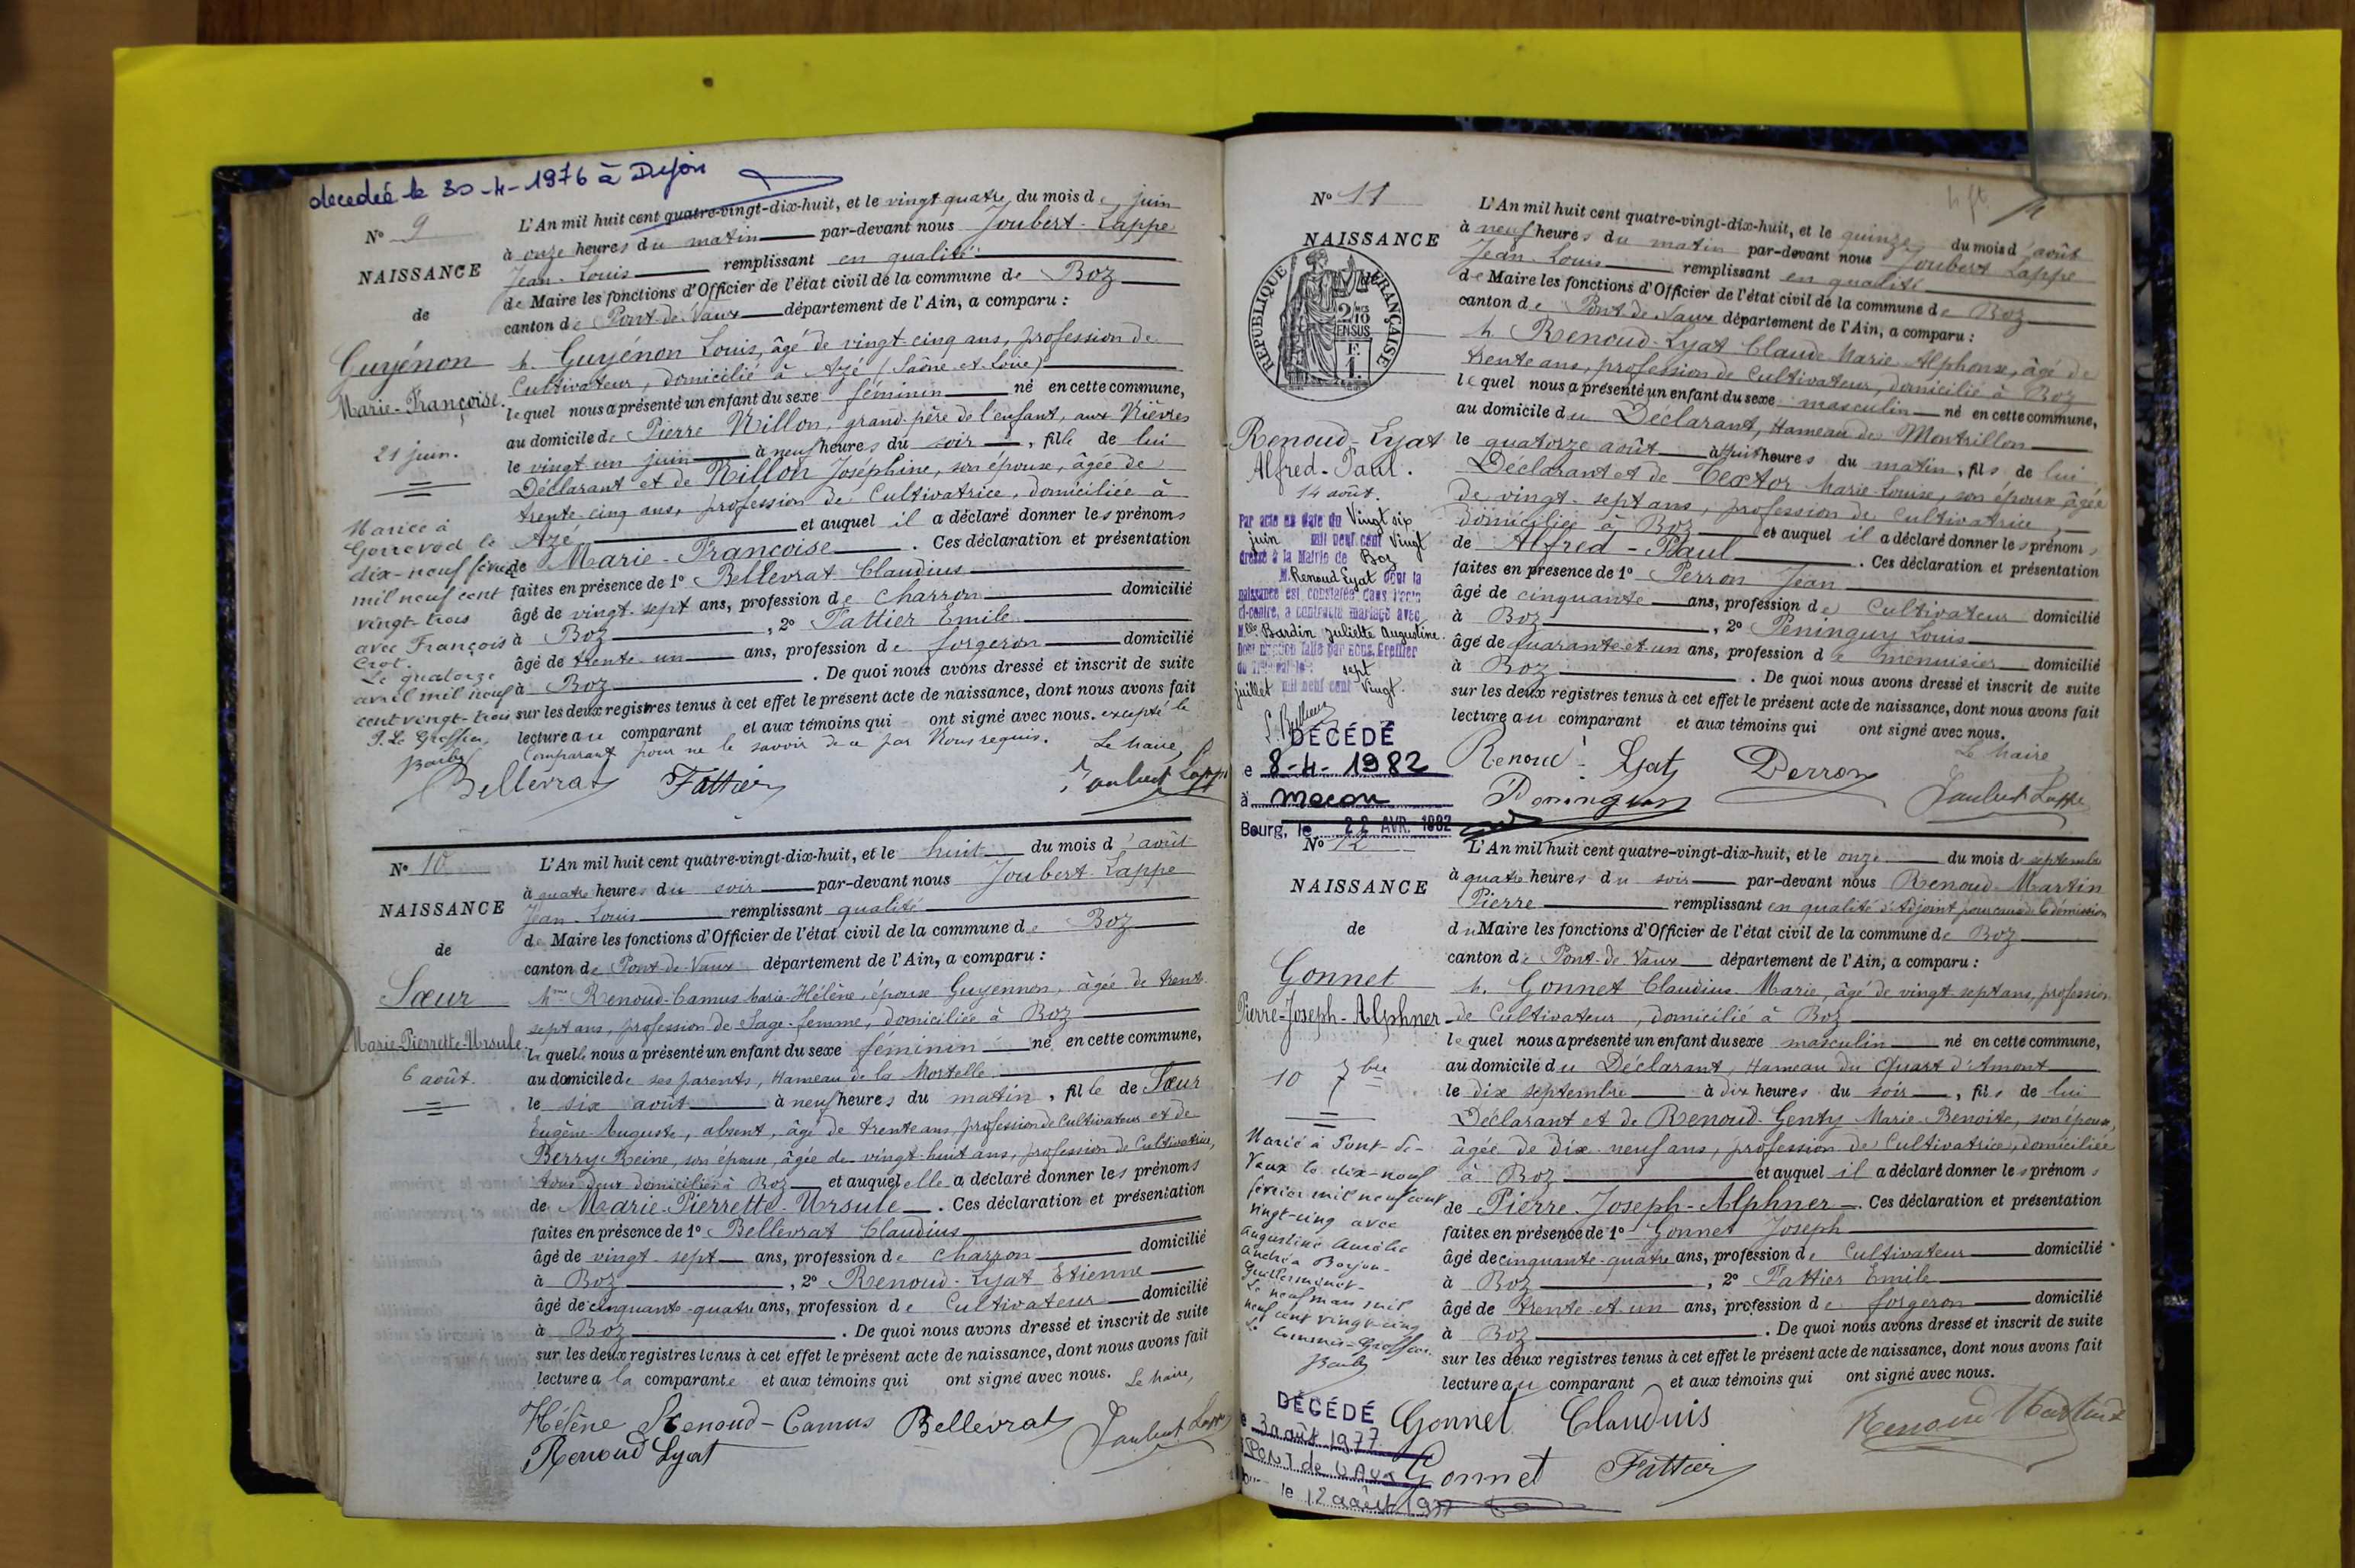 décédée le 30-4-1976 à Dijon
N° 9
NAISSANCE
de
Guyénon
Marie-Françoise.
21 juin.
Mariée à
Gorrevod le
dix-neuf février
mil neuf cent
vingt-trois
avec François
Crot.
Le quatorze
avril mil neuf
cent vingt-trois
P. Le Greffier,
L'An mil huit cent quatre-vingt-dix-huit, et le vingt quatre du mois de juin
à onze heures du matin par-devant nous Joubert-Lappe
Jean-Louis remplissant en qualité
de Maire les fonctions d'Officier de l'état civil de la commune de Boz
canton de Pont-de-Vaux département de l'Ain, a comparu :
M. Guyénon Louis, âgé de vingt-cinq ans, profession de
Cultivateur, domicilié à Azé (Saône-et-Loire)
lequel nous a présenté un enfant du sexe féminin né en cette commune,
au domicile de Pierre Nillon, grand-père de l'enfant, aux
le vingt un juin à neuf heures du soir, fille de lui
Déclarant et de Nillon Joséphine, son épouse, âgée de
trente-cinq ans, profession de Cultivatrice, domiciliée à
Azé et auquel il a déclaré donner les prénoms
de Marie-Françoise. Ces déclaration et présentation
faites en présence de 1° Bellevrat Claudius
âgé de vingt-sept ans, profession de Charron domicilié
à Boz, 2° Fattier Emile
âgé de trente-un ans, profession de forgeron domicilié
à Boz. De quoi nous avons dressé et inscrit de suite
sur les deux registres tenus à cet effet le présent acte de naissance, dont nous avons fait
lecture au comparant et aux témoins qui ont signé avec nous. excepté le
Comparant pour ne le savoir de ce par Nous requis. Le Maire,
Bellevrat Fattier Joubert Lappe
N° 10
NAISSANCE
de
Sœur
Marie-Pierrette-Ursule.
6 août.
L'An mil huit cent quatre-vingt-dix-huit, et le huit du mois d'août
à quatre heures du soir par-devant nous Joubert-Lappe
Jean-Louis remplissant qualité
de Maire les fonctions d'Officier de l'état civil de la commune de Boz
canton de Pont-de-Vaux département de l'Ain, a comparu :
Mme Renoud-Camus Marie-Hélène, épouse Guyennon, âgée de trente
sept ans, profession de Sage-femme, domiciliée à Boz
laquelle nous a présenté un enfant du sexe féminin né en cette commune,
au domicile de ses parents, Hameau de la Mortelle
le six août à neuf heures du matin, fille de Sœur
Eugène-Auguste, absent, âgé de trente ans, profession de Cultivateur et de
Berry Reine, son épouse, âgée de vingt-huit ans, profession de Cultivatrice,
tous deux domiciliés à Boz et auquel elle a déclaré donner les prénoms
de Marie-Pierrette-Ursule. Ces déclaration et présentation
faites en présence de 1° Bellevrat Claudius
âgé de vingt-sept ans, profession de Charron domicilié
à Boz, 2° Renoud-Lyat Etienne
âgé de cinquante-quatre ans, profession de Cultivateur domicilié
à Boz. De quoi nous avons dressé et inscrit de suite
sur les deux registres tenus à cet effet le présent acte de naissance, dont nous avons fait
lecture a la comparante et aux témoins qui ont signé avec nous. Le Maire,
Hélène Renoud-Camus Bellevrat Joubert Lappe
Renoud Lyat
N° 11
NAISSANCE
de
REPUBLIQUE FRANÇAISE
Renoud-Lyat
Alfred-Paul.
14 août.
Par acte en date du Vingt six
juin mil neuf cent Vingt
dressé à la Mairie de Boz
M. Renoud Lyat dont la
naissance est constatée dans l'acte
ci-contre, a contracté mariage avec
Mlle Bardin Juliette Augustine.
juillet mil neuf cent Vingt.
DÉCÉDÉ
e 8-4-1982
à macon
Bourg, le 22 AVR. 1982
L'An mil huit cent quatre-vingt-dix-huit, et le quinze du mois d'août
à neuf heures du matin par-devant nous Joubert Lappe
Jean-Louis remplissant en qualité
de Maire les fonctions d'Officier de l'état civil de la commune de Boz
canton de Pont-de-Vaux département de l'Ain, a comparu :
M. Renoud-Lyat Claude Marie Alphonse, âgé de
trente ans, profession de Cultivateur, domicilié à Boz
lequel nous a présenté un enfant du sexe masculin né en cette commune,
au domicile du Déclarant, Hameau de Montrillon
le quatorze août à huit heures du matin, fils de lui
Déclarant et de Textor Marie-Louise, son épouse âgée
de vingt-sept ans, profession de Cultivatrice,
domiciliée à Boz et auquel il a déclaré donner les prénoms
de Alfred-Paul. Ces déclaration et présentation
faites en présence de 1° Perron Jean
âgé de cinquante ans, profession de Cultivateur domicilié
à Boz, 2° Peninguy Louis
âgé de quarante et un ans, profession de menuisier domicilié
à Boz. De quoi nous avons dressé et inscrit de suite
sur les deux registres tenus à cet effet le présent acte de naissance, dont nous avons fait
lecture au comparant et aux témoins qui ont signé avec nous.
Le Maire,
Renoud-Lyat Perron
Peninguy Joubert Lappe
N° 12
NAISSANCE
de
Gonnet
Pierre-Joseph-Alphner
10 7bre
Marié à Pont-de-
Vaux le dix-neuf
février mil neuf cent
vingt-cinq avec
Augustine Aurélie
Andréa Borjon-
Guillermenet-
Le neuf mars mil
neuf cent vingt-cinq
Le Commis-Greffier.
DÉCÉDÉ
3 août 1977
PONT de VAUX
le 12 août 1977
L'An mil huit cent quatre-vingt-dix-huit, et le onze du mois de septembre
à quatre heures du soir par-devant nous Renoud-Martin
Pierre remplissant en qualité d'Adjoint pour cause de démission
du Maire les fonctions d'Officier de l'état civil de la commune de Boz
canton de Pont-de-Vaux département de l'Ain, a comparu :
M. Gonnet Claudius-Marie, âgé de vingt-sept ans, profession
de Cultivateur, domicilié à Boz
lequel nous a présenté un enfant du sexe masculin né en cette commune,
au domicile du Déclarant, Hameau du Quart d'Amont
le dix septembre à dix heures du soir, fils de lui
Déclarant et de Renoud-Genty Marie-Benoite, son épouse,
âgée de dix-neuf ans, profession de Cultivatrice, domiciliée
à Boz et auquel il a déclaré donner les prénoms
de Pierre-Joseph-Alphner. Ces déclaration et présentation
faites en présence de 1° Gonnet Joseph
âgé de cinquante-quatre ans, profession de Cultivateur domicilié
à Boz, 2° Fattier Emile
âgé de trente et un ans, profession de forgeron domicilié
à Boz. De quoi nous avons dressé et inscrit de suite
sur les deux registres tenus à cet effet le présent acte de naissance, dont nous avons fait
lecture au comparant et aux témoins qui ont signé avec nous.
Gonnet Claudius Renoud Martin
Gonnet Fattier